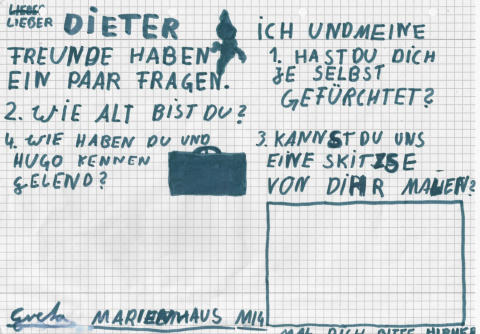 LIEBER
LIEBER DIETER
ICH UND MEINE
FREUNDE HABEN
EIN PAAR FRAGEN.
1. HAST DU DICH
JE SELBST
GEFÜRCHTET?
2. WIE ALT BIST DU?
3. KANNST DU UNS
EINE SKITZSE
VON DIHR MALEN?
4. WIE HABEN DU UND
HUGO KENNEN
GELEND?
Greta MARIENHAUS M14
MAL DICH BITTE HIRHER